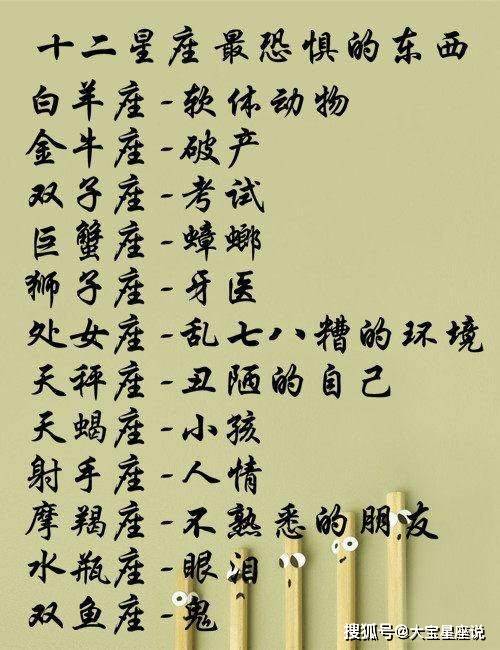 十二星座最恐惧的东西
白羊座-软体动物
金牛座-破产
双子座-考试
巨蟹座-蟑螂
狮子座-牙医
处女座-乱七八糟的环境
天秤座-丑陋的自己
天蝎座-小孩
射手座-人情
摩羯座-不熟悉的朋友
水瓶座-眼泪
双鱼座-鬼
搜狐号@大宝星座说